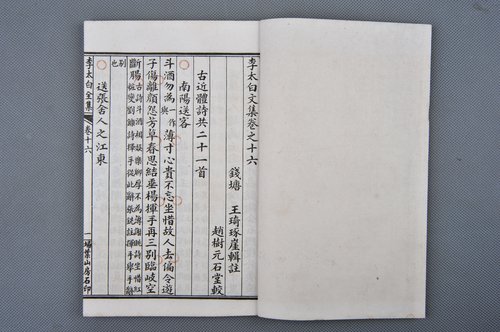 李太白文集卷之十六
錢塘　王琦琢崖輯註
趙樹元石堂較
古近體詩共二十一首
南陽送客
斗酒勿為一作與薄寸心貴不忘坐惜故人去偏令遊
子傷離顏怨芳草春思結垂楊揮手再三別臨岐空
斷腸
送張舍人之江東
李太白全集
卷十六
一
埽葉山房石印